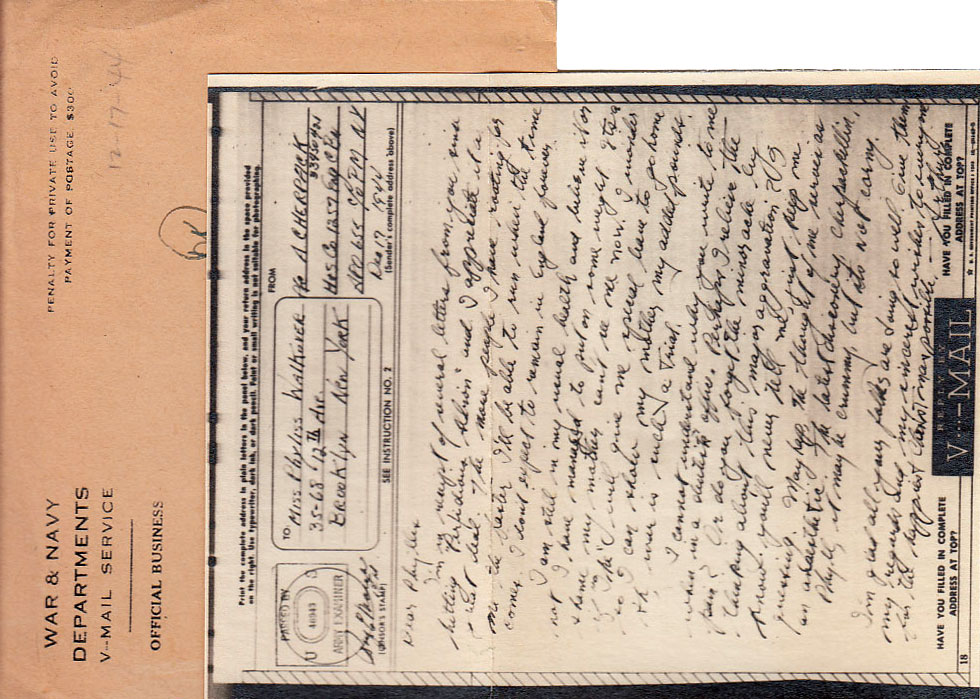 WAR & NAVY
DEPARTMENTS
V--MAIL SERVICE
OFFICIAL BUSINESS
PENALTY FOR PRIVATE USE TO AVOID
PAYMENT OF POSTAGE. $300
12-17-44
Print the complete address in plain letters in the panel below, and your return address in the space provided
on the right. Use typewriter, dark ink, or dark pencil. Faint or small writing is not suitable for photographing.
PASSED BY
U S
ARMY EXAMINER
(CENSOR'S STAMP)
TO
MISS PHYLISS WALKOVER
35-68 12TH AVE.
BROOKLYN NEW YORK
SEE INSTRUCTION NO. 2
FROM
A CHERPACK
HQS. CO. 1357 ENG. C. Bn
APO 655 C/O PM NY
Dec 17 1944
(Sender's complete address above)
Dear Phyllis
I'm in receipt of several letters from you since
hitting and I appreciate it a
great deal. The more people I have rooting for
me the better I'll be able to run when the time
comes. I dont expect to remain in Eng land forever
I am still in my usual health and believe it or
not I have managed to put on some weight. It's a
shame my mother cant see me now. I wonder
if the will give me special leave to go home
so I can show my mother my added pounds.
The war is such a trial.
I cannot understand why you write to me
when in a dentists office. Perhaps I relieve the
pain? Or do you forget the minor ache by
thinking about this major aggravation? I
know you'll never tell me, just keep me
guessing. May haps the thought of me serves as
an anaesthetic. The latest discovery, Cherpackillin,
Phyll, it may be crummy but its not corny.
I'm glad all your folks are doing so well. Give them
my regards and my sincerest wishes to everyone
for the happiest possible.
HAVE YOU FILLED IN COMPLETE
ADDRESS AT TOP?
REPLY BY
V--MAIL
HAVE YOU FILLED IN COMPLETE
ADDRESS AT TOP?
18